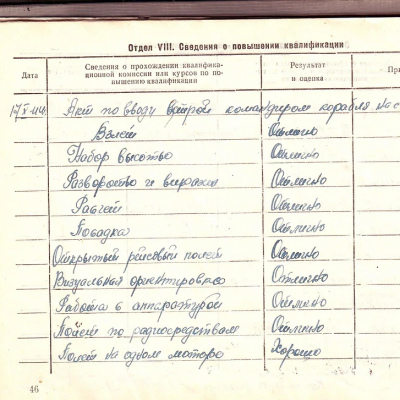 Отдел VIII. Сведения о повышении квалификации
Дата
Сведения о прохождении квалифика-
ционной комиссии или курсов по по-
вышению квалификации
Результат
и оценка
При
Акт по вводу в строй командиром корабля на с
Взлет Отлично
Набор высоты Отлично
Развороты и виражи Отлично
Отлично
Посадка Отлично
Открытый полет Отлично
Визуальная ориентировка Отлично
Работа с аппаратурой Отлично
Полет по радиосредствам Отлично
Полет на одном моторе Хорошо
46